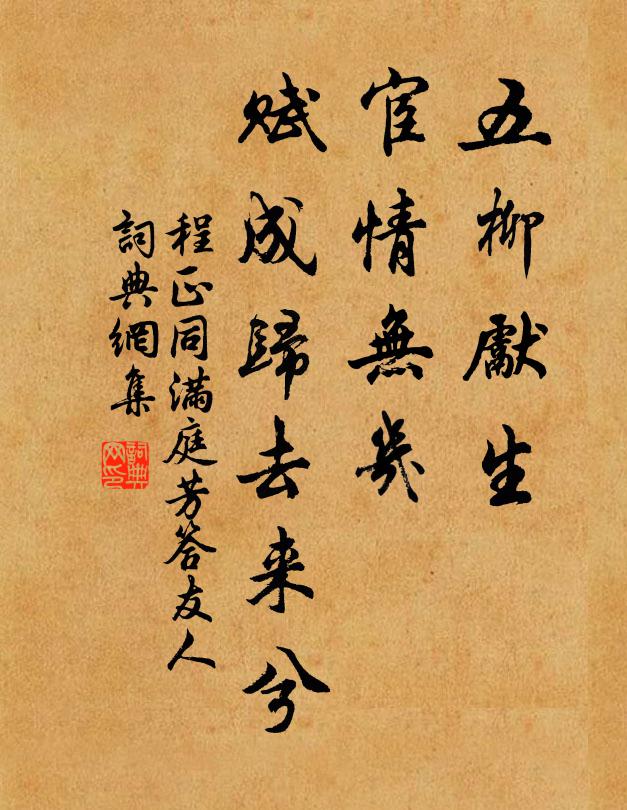 五柳獻生
宦情無幾
賦成歸去来兮
程正同滿庭芳答友人
詞典網集
詞典網印